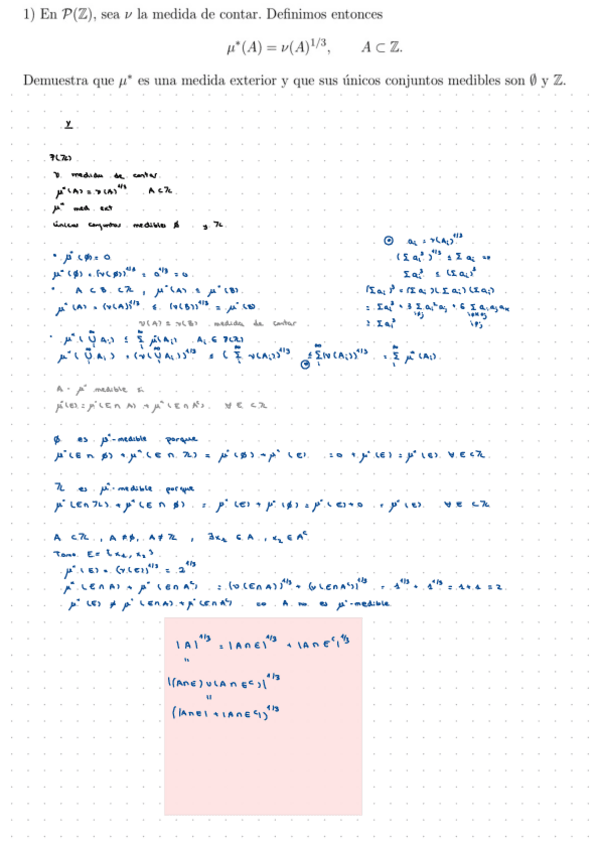 1) En P(ℤ), sea ν la medida de contar. Definimos entonces
μ*(A) = ν(A)^{1/3},   A ⊂ ℤ.
Demuestra que μ* es una medida exterior y que sus únicos conjuntos medibles son ∅ y ℤ.
P(ℤ)
ν medida de contar
μ*(A) = ν(A)^{1/3}   A ⊂ ℤ
μ* med ext
únicos conjuntos medibles ∅ y ℤ
• μ*(∅) = 0
μ*(∅) = (ν(∅))^{1/3} = 0^{1/3} = 0
• A ⊂ B ⊂ ℤ, μ*(A) ≤ μ*(B)
μ*(A) = (ν(A))^{1/3} ≤ (ν(B))^{1/3} = μ*(B)
ν(A) ≤ ν(B) medida de contar
• μ*(∪ A_i) ≤ Σ μ*(A_i)   A_i ∈ P(ℤ)
μ*(∪ A_i) = (ν(∪ A_i))^{1/3} ≤ (Σ ν(A_i))^{1/3} ≤ Σ (ν(A_i))^{1/3} = Σ μ*(A_i)
a_i = ν(A_i)^{1/3}
(Σ a_i^3)^{1/3} ≤ Σ a_i ⇔
Σ a_i^3 ≤ (Σ a_i)^3
(Σ a_i)^3 = (Σ a_i)(Σ a_i)(Σ a_i)
= Σ a_i^3 + 3 Σ a_i^2 a_j + 6 Σ a_i a_j a_k
≥ Σ a_i^3
A μ* medible si
μ*(E) = μ*(E ∩ A) + μ*(E ∩ A^c)   ∀ E ⊂ ℤ
∅ es μ*-medible porque
μ*(E ∩ ∅) + μ*(E ∩ ℤ) = μ*(∅) + μ*(E) = 0 + μ*(E) = μ*(E) ∀ E ⊂ ℤ
ℤ es μ*-medible porque
μ*(E ∩ ℤ) + μ*(E ∩ ∅) = μ*(E) + μ*(∅) = μ*(E) + 0 = μ*(E)   ∀ E ⊂ ℤ
A ⊂ ℤ, A ≠ ∅, A ≠ ℤ, ∃ x_1 ∈ A, x_2 ∈ A^c
Tomo E = {x_1, x_2}
μ*(E) = (ν(E))^{1/3} = 2^{1/3}
μ*(E ∩ A) + μ*(E ∩ A^c) = (ν(E ∩ A))^{1/3} + (ν(E ∩ A^c))^{1/3} = 1^{1/3} + 1^{1/3} = 1 + 1 = 2
μ*(E) ≠ μ*(E ∩ A) + μ*(E ∩ A^c) ⇒ A no es μ*-medible
|A|^{1/3} = |A ∩ E|^{1/3} + |A ∩ E^c|^{1/3}
"
|(A ∩ E) ∪ (A ∩ E^c)|^{1/3}
"
(|A ∩ E| + |A ∩ E^c|)^{1/3}